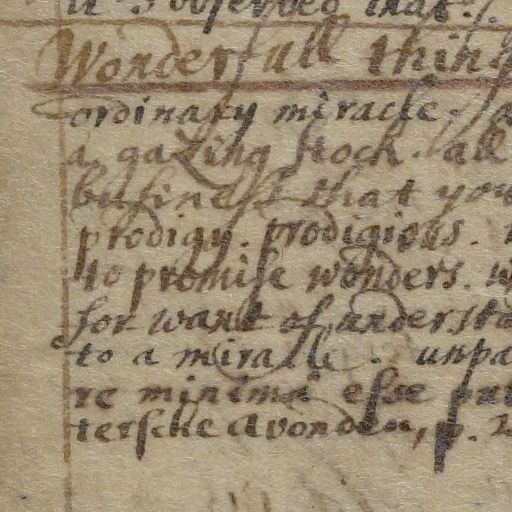 it I observed that
Wonderfull thing
ordinary miracle. a
a gazing stock. all
business that you
prodigy. prodigious.
to promise wonders. w
for want of understa
to a miracle. unpa
re minima esse pru
tersche Avonden, p. 2